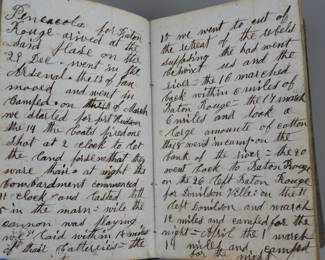 Pencacola for Baton
Rouge arrived at the
said place on the
29 Dec - went in the
Arsenal - the 13 of Jan
mooved and went in
Camped - on the 13 of March
we started for port Hudson
the 14 the boats fired one
shot at 2 clock to let
the land forse no that they
ware thair - at night the
bombardment commenced
11 - clock and lasted till
5 in the morn - wile the
cannon was playing
we laid within 18 miles
of thair Batteries - the
we went to out of
the retreat of the rebels
supposing the had went
between us and the
river - the 16 marched
back within 6 miles of
Baton Rouge - the 17 march
6 miles and took a
large amounts of cotton
the 18 went in camp on the
bank of the river - the 20
went back to Baton Rouge
on the 26 left Baton Rouge
for Donilson Ville - on the 31
left Donilson and march
18 miles and camped for the
night - April the 1 march
19 miles and camped
for the night